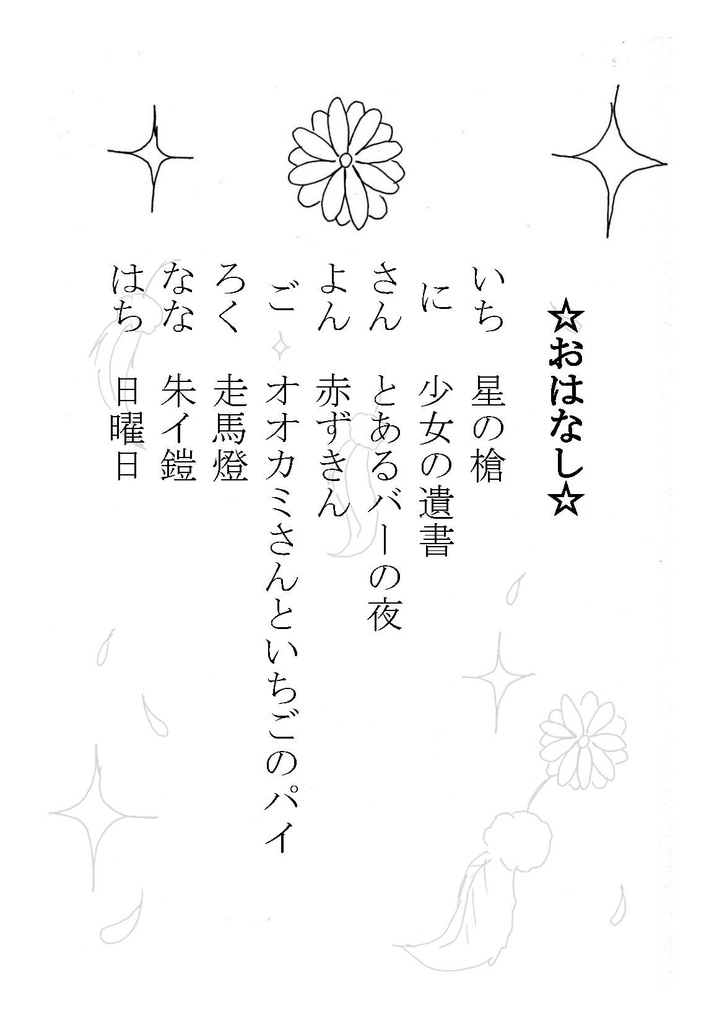 ☆おはなし☆
いち　星の槍
に　少女の遺書
さん　とあるバーの夜
よん　赤ずきん
ご　オオカミさんといちごのパイ
ろく　走馬燈
なな　朱イ鎧
はち　日曜日